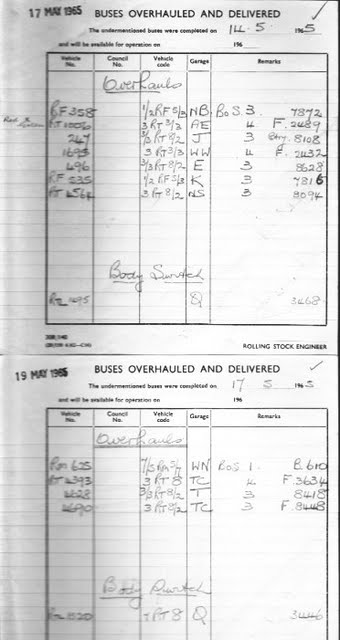 17 MAY 1965 BUSES OVERHAULED AND DELIVERED
The undermentioned buses were completed on 14.5 1965
and will be available for operation on 196
Vehicle No. Council No. Vehicle code Garage Remarks
Overhauls
RF 358 1/2 RF 5/3 NB BoS. 3. 7872
RT 1006 3 RT 3/3 AE 4 F. 2489
247 3/3 RT 8/2 J 3 8108
1695 3 RT 3/3 WW 4 F. 2432
496 3/3 RT 8/2 E 3 8628
RF 535 1/2 RF 5/3 K 3 7816
RT 4564 3 RT 8/2 NS 3 8094
Body Switch
1495 Q 3468
ROLLING STOCK ENGINEER
19 MAY 1965 BUSES OVERHAULED AND DELIVERED
The undermentioned buses were completed on 17 5 1965
and will be available for operation on 196
Vehicle No. Council No. Vehicle code Garage Remarks
Overhauls
RM 625 WN BoS 1. B.610
RT 4393 3 RT 8 TC 4 F. 3634
4628 3/3 RT 8/2 T 3 8418
4690 3 RT 8/2 TC 3 F. 8448
Body Switch
1520 RT 8 Q 3446